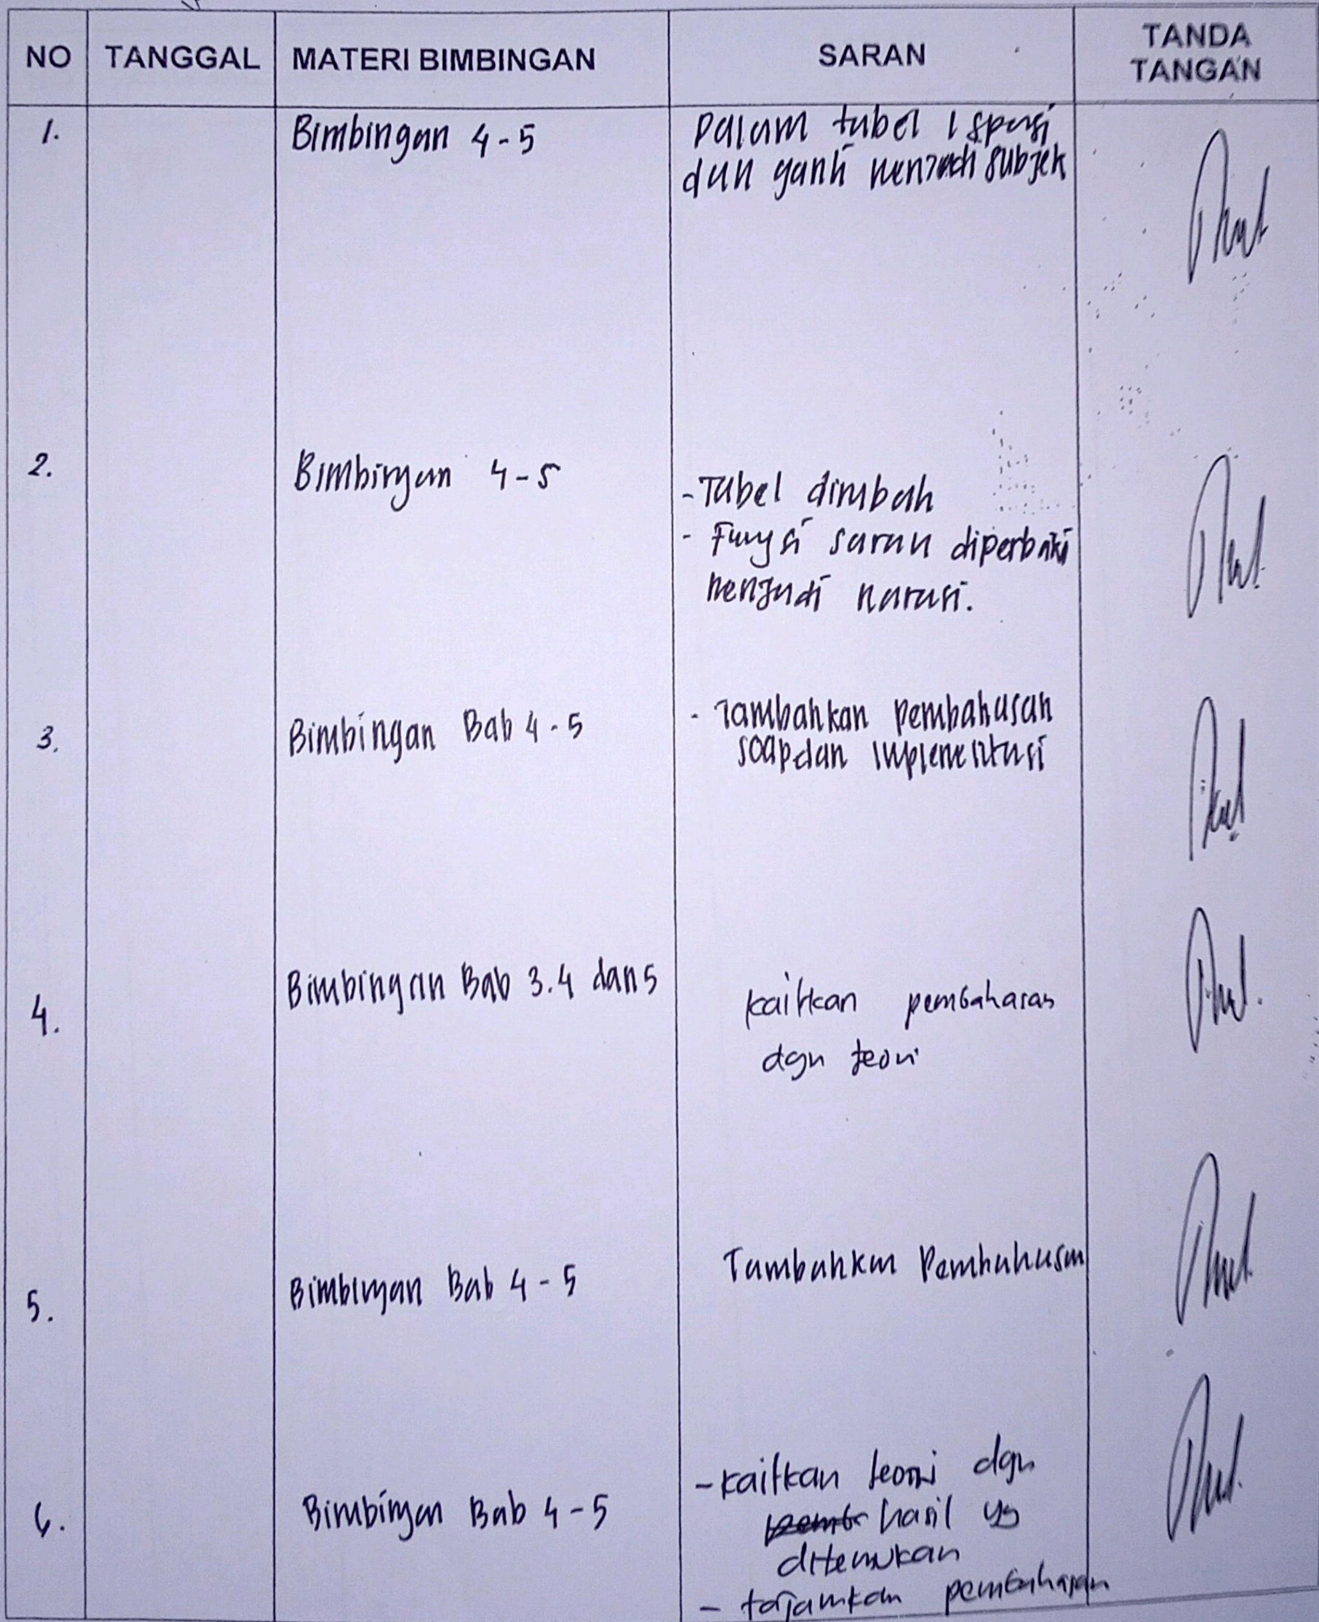 NO TANGGAL MATERI BIMBINGAN SARAN TANDA TANGAN
1. Bimbingan 4-5 Dalam tabel 1 spasi
dan ganti menjadi subjek
2. Bimbingan 4-5
- Tabel dirubah
- Fungsi saran diperbaiki
menjadi narasi.
3. Bimbingan Bab 4-5 - Tambahkan pembahasan
soap dan implementasi
4. Bimbingan Bab 3.4 dan 5 kaitkan pembahasan
dgn teori
5. Bimbingan Bab 4-5 Tambahkan Pembahasan
6. Bimbingan Bab 4-5 - kaitkan teori dgn
hasil yg
ditemukan
- tajamkan pembahasan